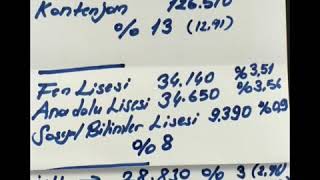 Kontenjan 126.510
% 13 (12.91)
Fen Lisesi 34.140 %3,51
Anadolu Lisesi 34.650 %3.56
Sosyal Bilimler Lisesi 9.390 %0,9
% 8
28.830 % 3 (2,96)